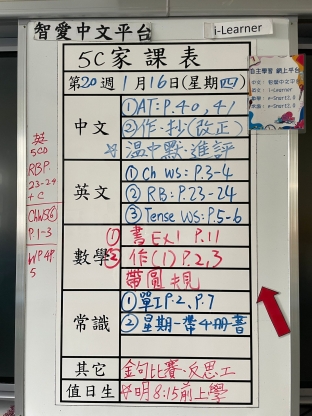 智愛中文平台
i-Learner
5C家課表
自主學習 網上平台
第20週 1月16日(星期四)
中文
①AT: P.40, 41
②作·抄(改正)
温中默·進評
英文
① Ch WS: P.3-4
② RB: P.23-24
③ Tense WS: P.5-6
數學
① 書Ex1 P.11
② 作(1) P.2,3
帶圓規
常識
① 單1 P.2、P.7
② 星期一帶4冊書
其它
金句比賽、反思工
值日生
明8:15前上學
英
5CD
RB P.
23-24
+ C
Ch WS⑥
P.1-3
WP 4P.
5